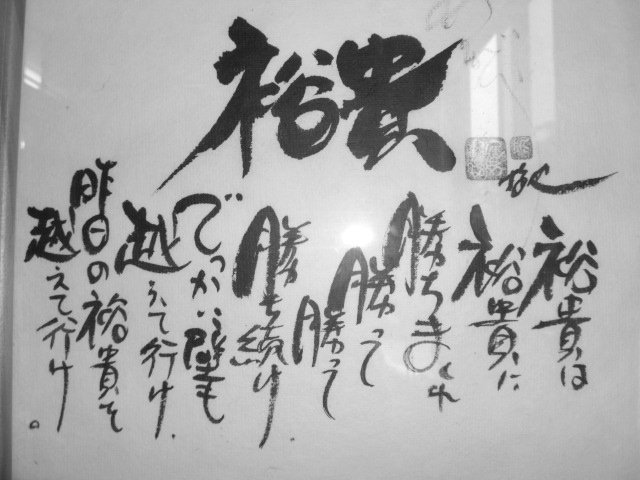 裕貴
裕貴は
裕貴に
勝ちまくれ
勝って
勝って
勝ち続け
でっかい壁も
越えて行け.
昨日の裕貴を
越えて行け。